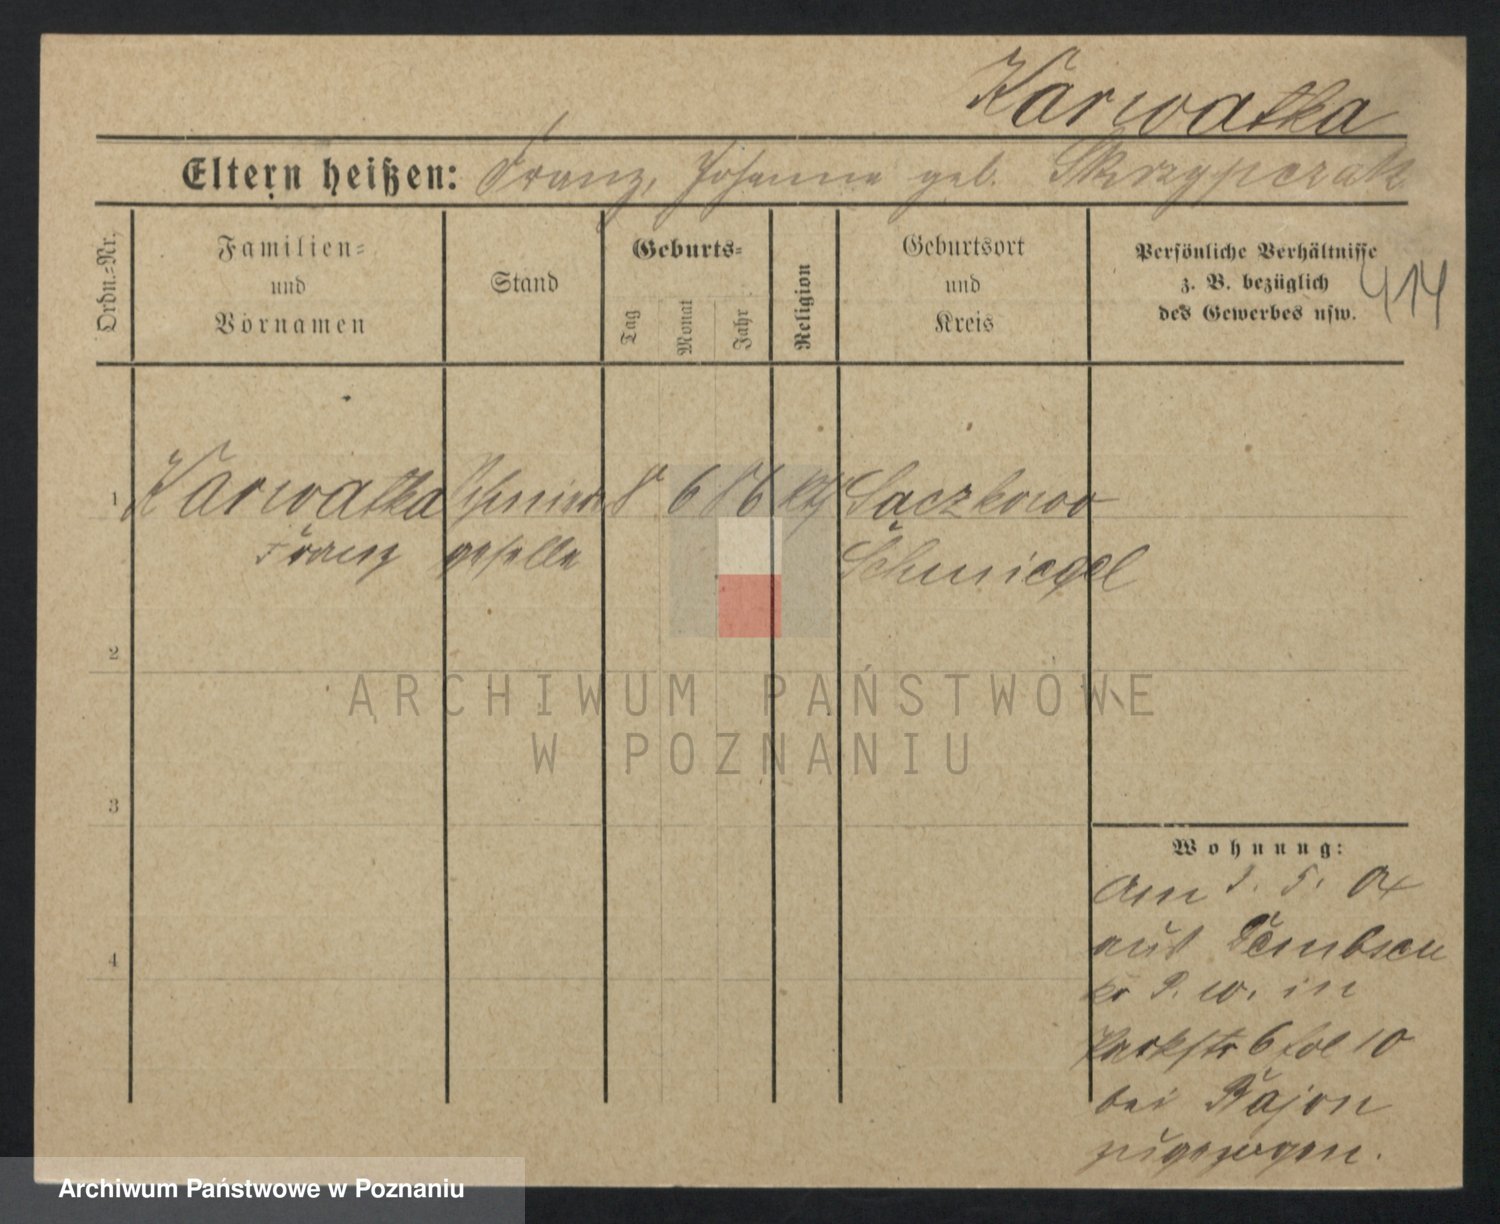 Karwatka
Eltern heißen: Franz, Johanna geb. Skrzypczak
Ordn.-Nr.
Familien-
und
Vornamen
Stand
Geburts-
Tag
Monat
Jahr
Religion
Geburtsort
und
Kreis
Persönliche Verhältnisse
z. B. bezüglich
des Gewerbes usw.
414
1 Karwatka 8 6 86 kth Saczkowo
Franz geselle Schmiegel
2
ARCHIWUM PAŃSTWOWE
W POZNANIU
3
Wohnung:
Am 5. 04
aus
4
kr P. W. in
Parkstr 6 fol 10
bei Rajon
zugezogen.
Archiwum Państwowe w Poznaniu